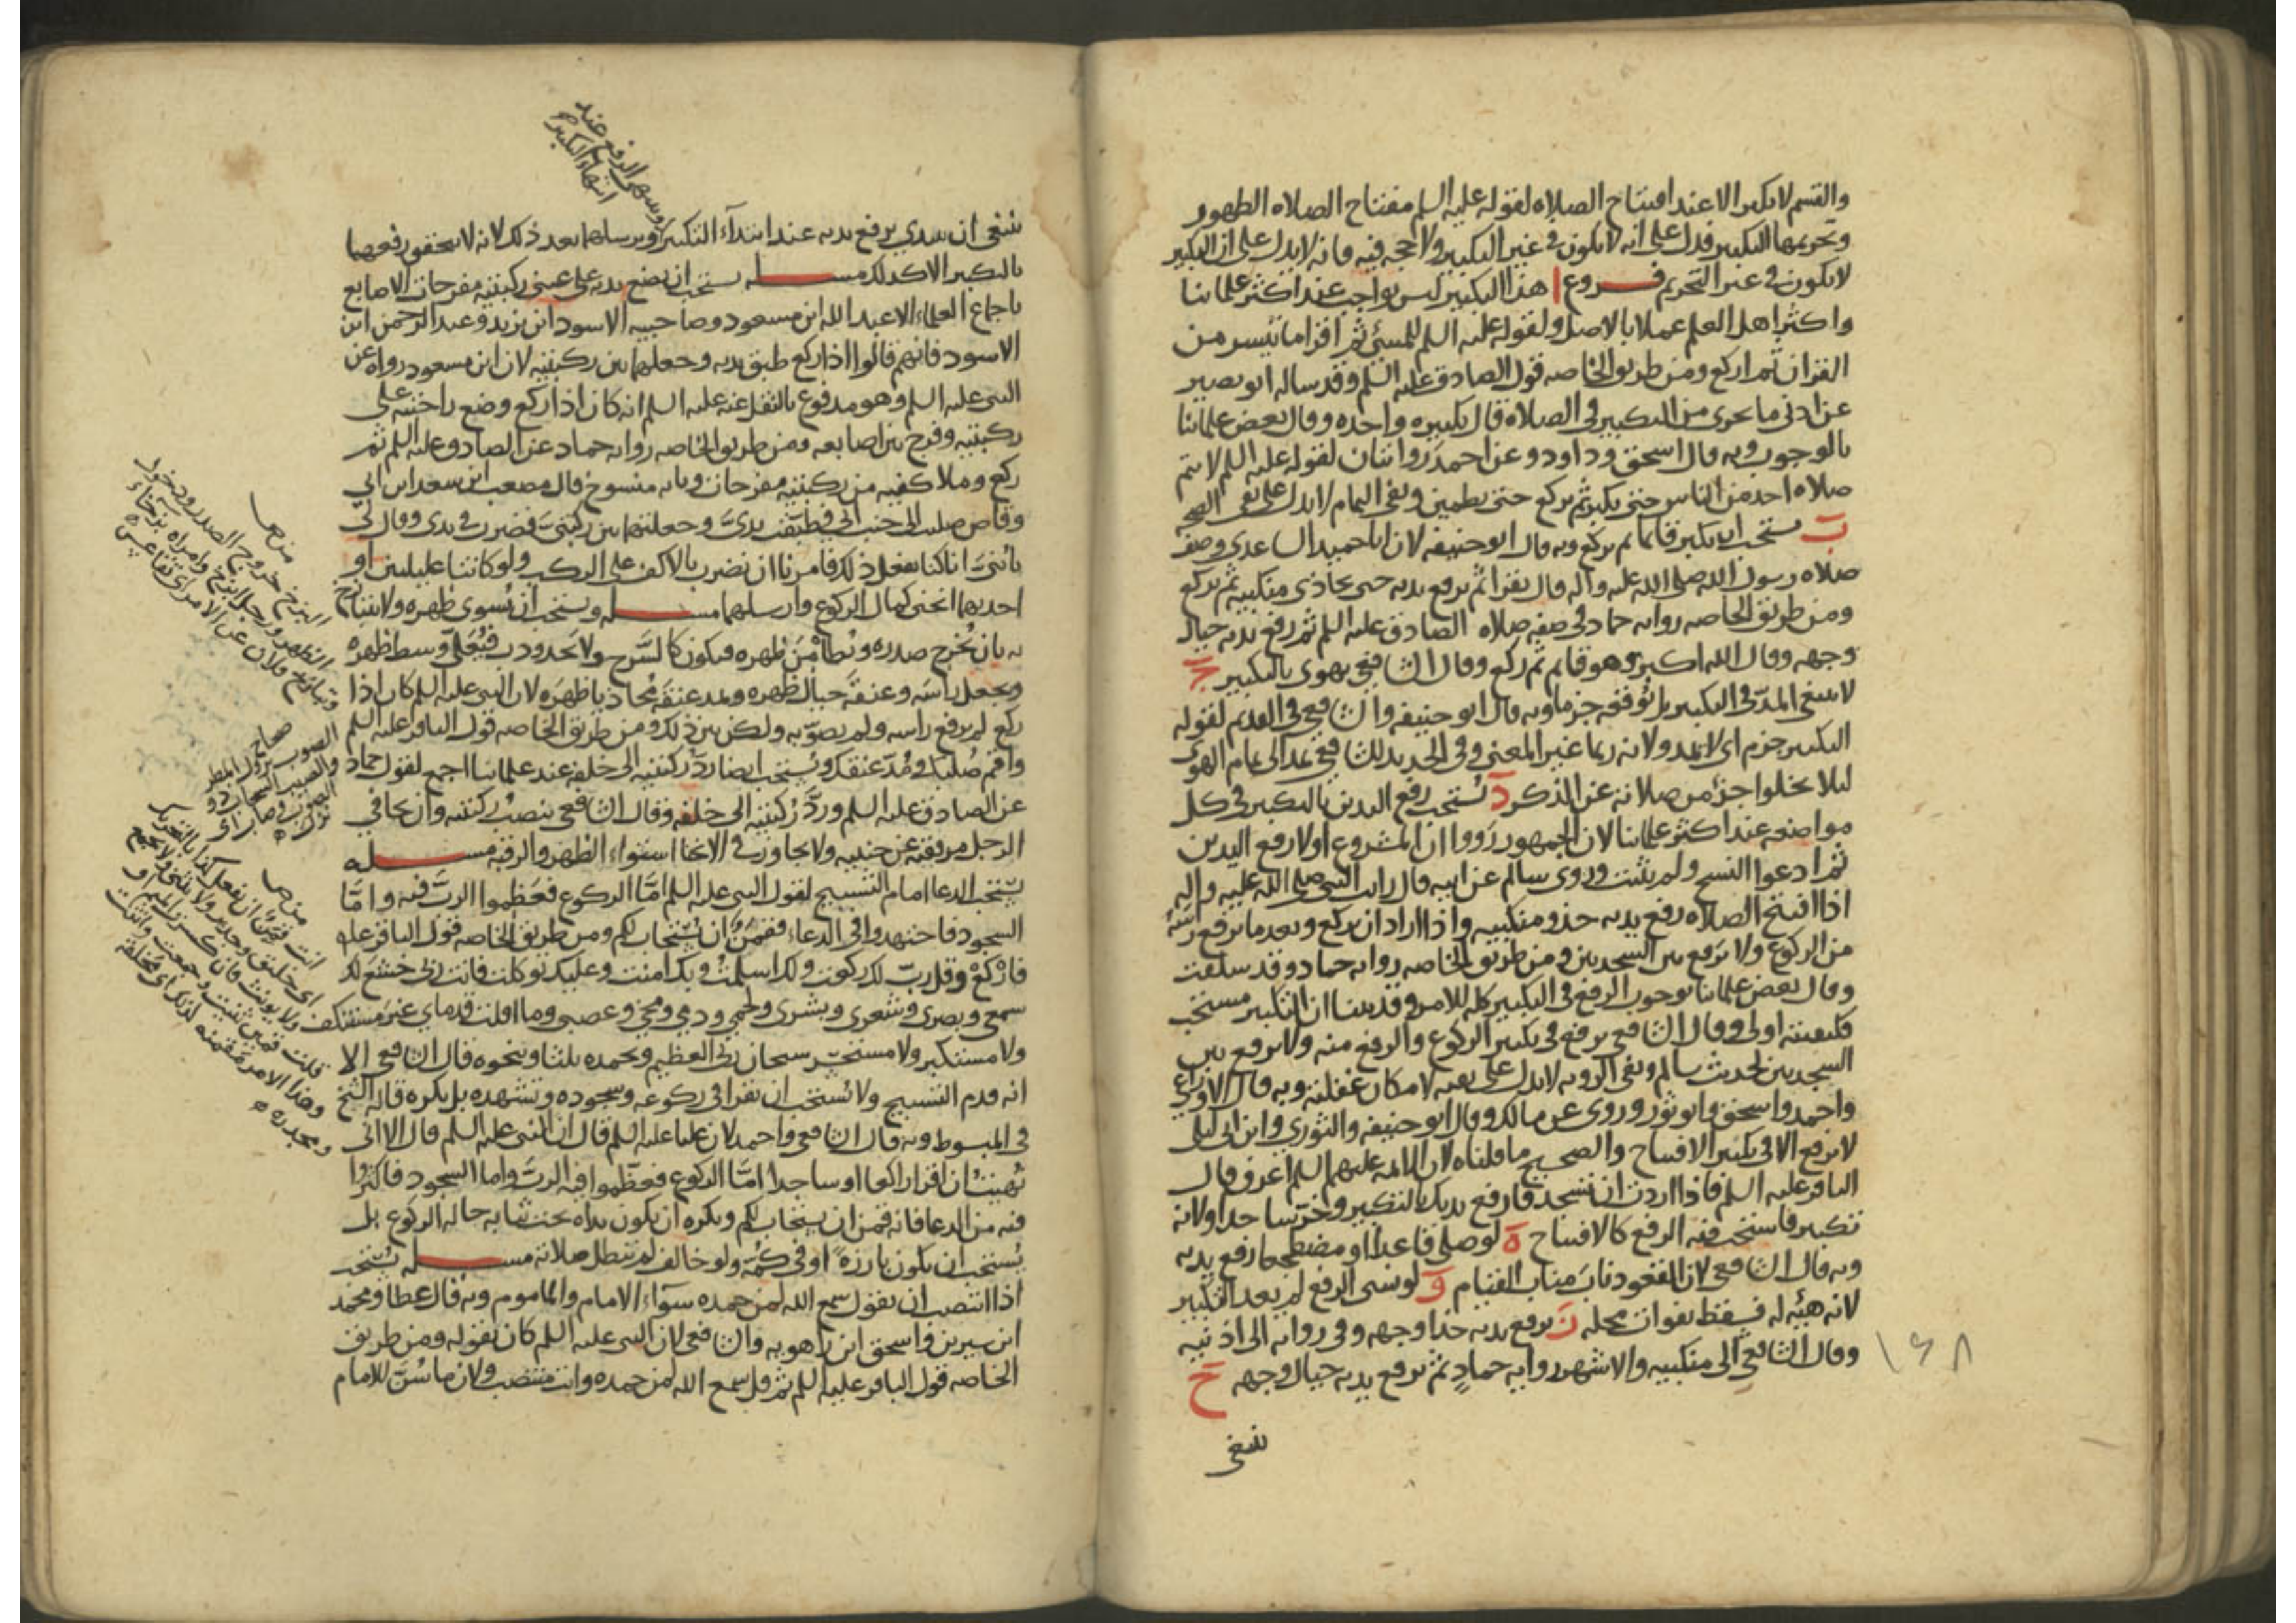 والقسم لا يكبر الا عند افتتاح الصلاه لقوله عليه السلم مفتاح الصلاه الطهور
وتحريمها التكبير فدل على انه لا يكون في غير التكبير ولا حجه فيه فانه لا يدل على ان التكبير
لا يكون في غير التحريم فروع ا هذا التكبير ليس بواجب عند اكثر علمائنا
واكثر اهل العلم عملا بالاصل ولقوله عليه السلم للمسئ ثم اقرا ما تيسر من
القران ثم اركع ومن طريق الخاصه قول الصادق عليه السلم وقد ساله ابو بصير
عن ادنى ما يجزى من التكبير في الصلاه قال تكبيره واحده وقال بعض علمائنا
بالوجوب وبه قال اسحق وداود وعن احمد روايتان لقوله عليه السلم لا يتم
صلاه احد من الناس حتى يكبر ثم يركع حتى يطمين ونفى التمام لا يدل على نفى الصحه
ب يستحب ان يكبر قائما ثم يركع وبه قال ابو حنيفه لان ابا حميد الساعدى وصف
صلاه رسول الله صلى الله عليه واله قال يقرا ثم يرفع يديه حتى يحاذى منكبيه ثم يركع
ومن طريق الخاصه روايه حماد في صفه صلاه الصادق عليه السلم ثم رفع يديه حيال
وجهه وقال الله اكبر وهو قايم ثم ركع وقال الشافعي يهوى بالتكبير ج
لا ينبغي المد في التكبير بل يوقفه جزما وبه قال ابو حنيفه والشافعي في القديم لقوله
التكبير جزم اى لا يمد ولانه ربما غير المعنى وفي الجديد للشافعي يمد الى تمام الهوى
ليلا يخلوا جزء من صلاته عن الذكر د يستحب رفع اليدين بالتكبير في كل
مواضعه عند اكثر علمائنا لان الجمهور رووا ان المشروع اولا رفع اليدين
ثم ادعوا النسخ ولم يثبت وروى سالم عن ابيه قال رايت النبي صلى الله عليه واله
اذا افتتح الصلاه رفع يديه حذو منكبيه واذا اراد ان يركع وبعد ما يرفع راسه
من الركوع ولا يرفع بين السجدتين ومن طريق الخاصه روايه حماد وقد سلفت
وقال بعض علمائنا بوجوب الرفع في التكبير كله للامر وقد بينا ان التكبير مستحب
فكيفيته اولى وقال الشافعي يرفع في تكبير الركوع والرفع منه ولا يرفع بين
السجدتين لحديث سالم ونفى الرويه لا يدل على نفيه لامكان غفلته وبه قال الاوزاعي
واحمد واسحق وابو ثور وروى عن مالك وقال ابو حنيفه والثوري وابن ابى ليلى
لا يرفع الا في تكبير الافتتاح والصحيح ما قلناه لان الائمه عليهم السلم اعرف وقال
الباقر عليه السلم فاذا اردت ان تسجد فارفع يديك بالتكبير وخر ساجدا ولانه
تكبير فاستحب فيه الرفع كالافتتاح ه لو صلى قاعدا او مضطجعا رفع يديه
وبه قال الشافعي لان القعود ناب مناب القيام و لو نسى الرفع لم يعد التكبير
لانه هيئه له فسقط بفوات محله ز يرفع يديه حذا وجهه وفي روايه الى اذنيه
وقال الشافعي الى منكبيه والاشهر روايه حماد ثم يرفع يديه حيال وجهه ح
ينبغي
١٤٨
وينتهى الرفع عند
انتهاء التكبير
ينبغي ان يبتدي برفع يديه عند ابتدآء التكبير ويرسلهما بعد ذلك لانه لا يتحقق رفعهما
بالتكبير الا كذلك مسله يستحب ان يضع يديه على عيني ركبتيه مفرجات الاصابع
باجماع العلماء الا عبد الله ابن مسعود وصاحبيه الاسود ابن يزيد وعبد الرحمن ابن
الاسود فانهم قالوا اذا ركع طبق يديه وجعلهما بين ركبتيه لان ابن مسعود رواه عن
النبي عليه السلم وهو مدفوع بالنقل عنه عليه السلم انه كان اذا ركع وضع راحتيه على
ركبتيه وفرج بين اصابعه ومن طريق الخاصه روايه حماد عن الصادق عليه السلم ثم
ركع وملا كفيه من ركبتيه مفرجات وبانه منسوخ قال مصعب ابن سعد ابن ابي
وقاص صليت الى جنب ابي فطبقت يدى وجعلتهما بين ركبتي فضرب في يدى وقال لى
يا بني انا كنا نفعل ذلك فامرنا ان نضرب بالاكف على الركب ولو كانتا عليلتين او
احديهما انحنى كمال الركوع وارسلهما مسله ويستحب ان يسوى ظهره ولا يتبازخ
به بان يخرج صدره ويطأمن ظهره فيكون كالسرج ولا يحدودب فيعلى وسط ظهره
ويجعل راسه وعنقه حيال ظهره ويمد عنقه محاذيا ظهره لان النبي عليه السلم كان اذا
ركع لم يرفع راسه ولم يصوبه ولكن بين ذلك ومن طريق الخاصه قول الباقر عليه السلم
واقم صلبك ومد عنقك ويستحب ايضا رد ركبتيه الى خلفه عند علمائنا اجمع لقول حماد
عن الصادق عليه السلم ورد ركبتيه الى خلفه وقال الشافعي ينصب ركبتيه وان يجافي
الرجل مرفقيه عن جنبيه ولا يجاوز في الانحنا استواء الظهر والرقبه مسله
يستحب الدعا امام التسبيح لقول النبي عليه السلم اما الركوع فعظموا الرب فيه واما
السجود فاجتهدوا في الدعاء فقمن ان يستجاب لكم ومن طريق الخاصه قول الباقر عليه
فاركع وقل رب لك ركعت ولك اسلمت وبك امنت وعليك توكلت فانت ربى خشع لك
سمعي وبصرى وشعرى وبشرى ولحمي ودمي ومخي وعصبي وما اقلت قدماي غير مستنكف
ولا مستكبر ولا مستحسر سبحان ربى العظيم وبحمده ثلثا وبنحوه قال الشافعي الا
انه قدم التسبيح ولا يستحب ان يقرا في ركوعه وسجوده وتشهده بل يكره قاله الشيخ
في المبسوط وبه قال الشافعي واحمد لان عليا عليه السلم قال ان النبي عليه السلم قال الا اني
نهيت ان اقرا راكعا او ساجدا اما الركوع فعظموا فيه الرب واما السجود فاكثروا
فيه من الدعا فانه قمن ان يستجاب لكم ويكره ان يكون يداه تحت ثيابه حاله الركوع بل
يستحب ان يكون بارزه او في كمه ولو خالف لم تبطل صلاته مسله يستحب
اذا انتصب ان يقول سمع الله لمن حمده سوآء الامام والماموم وبه قال عطا ومحمد
ابن سيرين واسحق ابن راهويه والشافعي لان النبي عليه السلم كان يقوله ومن طريق
الخاصه قول الباقر عليه السلم ثم قل سمع الله لمن حمده وانت منتصب ولان ما سن للامام
من ص
البزخ خروج الصدر ودخول
الظهر ورجل ابزخ وامراه بزخاء
وتبازخ فلان عن الامر اى تقاعس
صحاح
الصوب نزول المطر
والصيب السحاب ذو
الصوب وصاب اى
نزل
من ص
انت قمن ان تفعل كذا بالتحريك
اى خليق وجدير ولا يثنى ولا يجمع
ولا يونث فان كسرت الميم او
قلت قمين ثنيت وجمعت وانثت
وهذا الامر مقمنه لذلك اى مخلقه
ومجدره